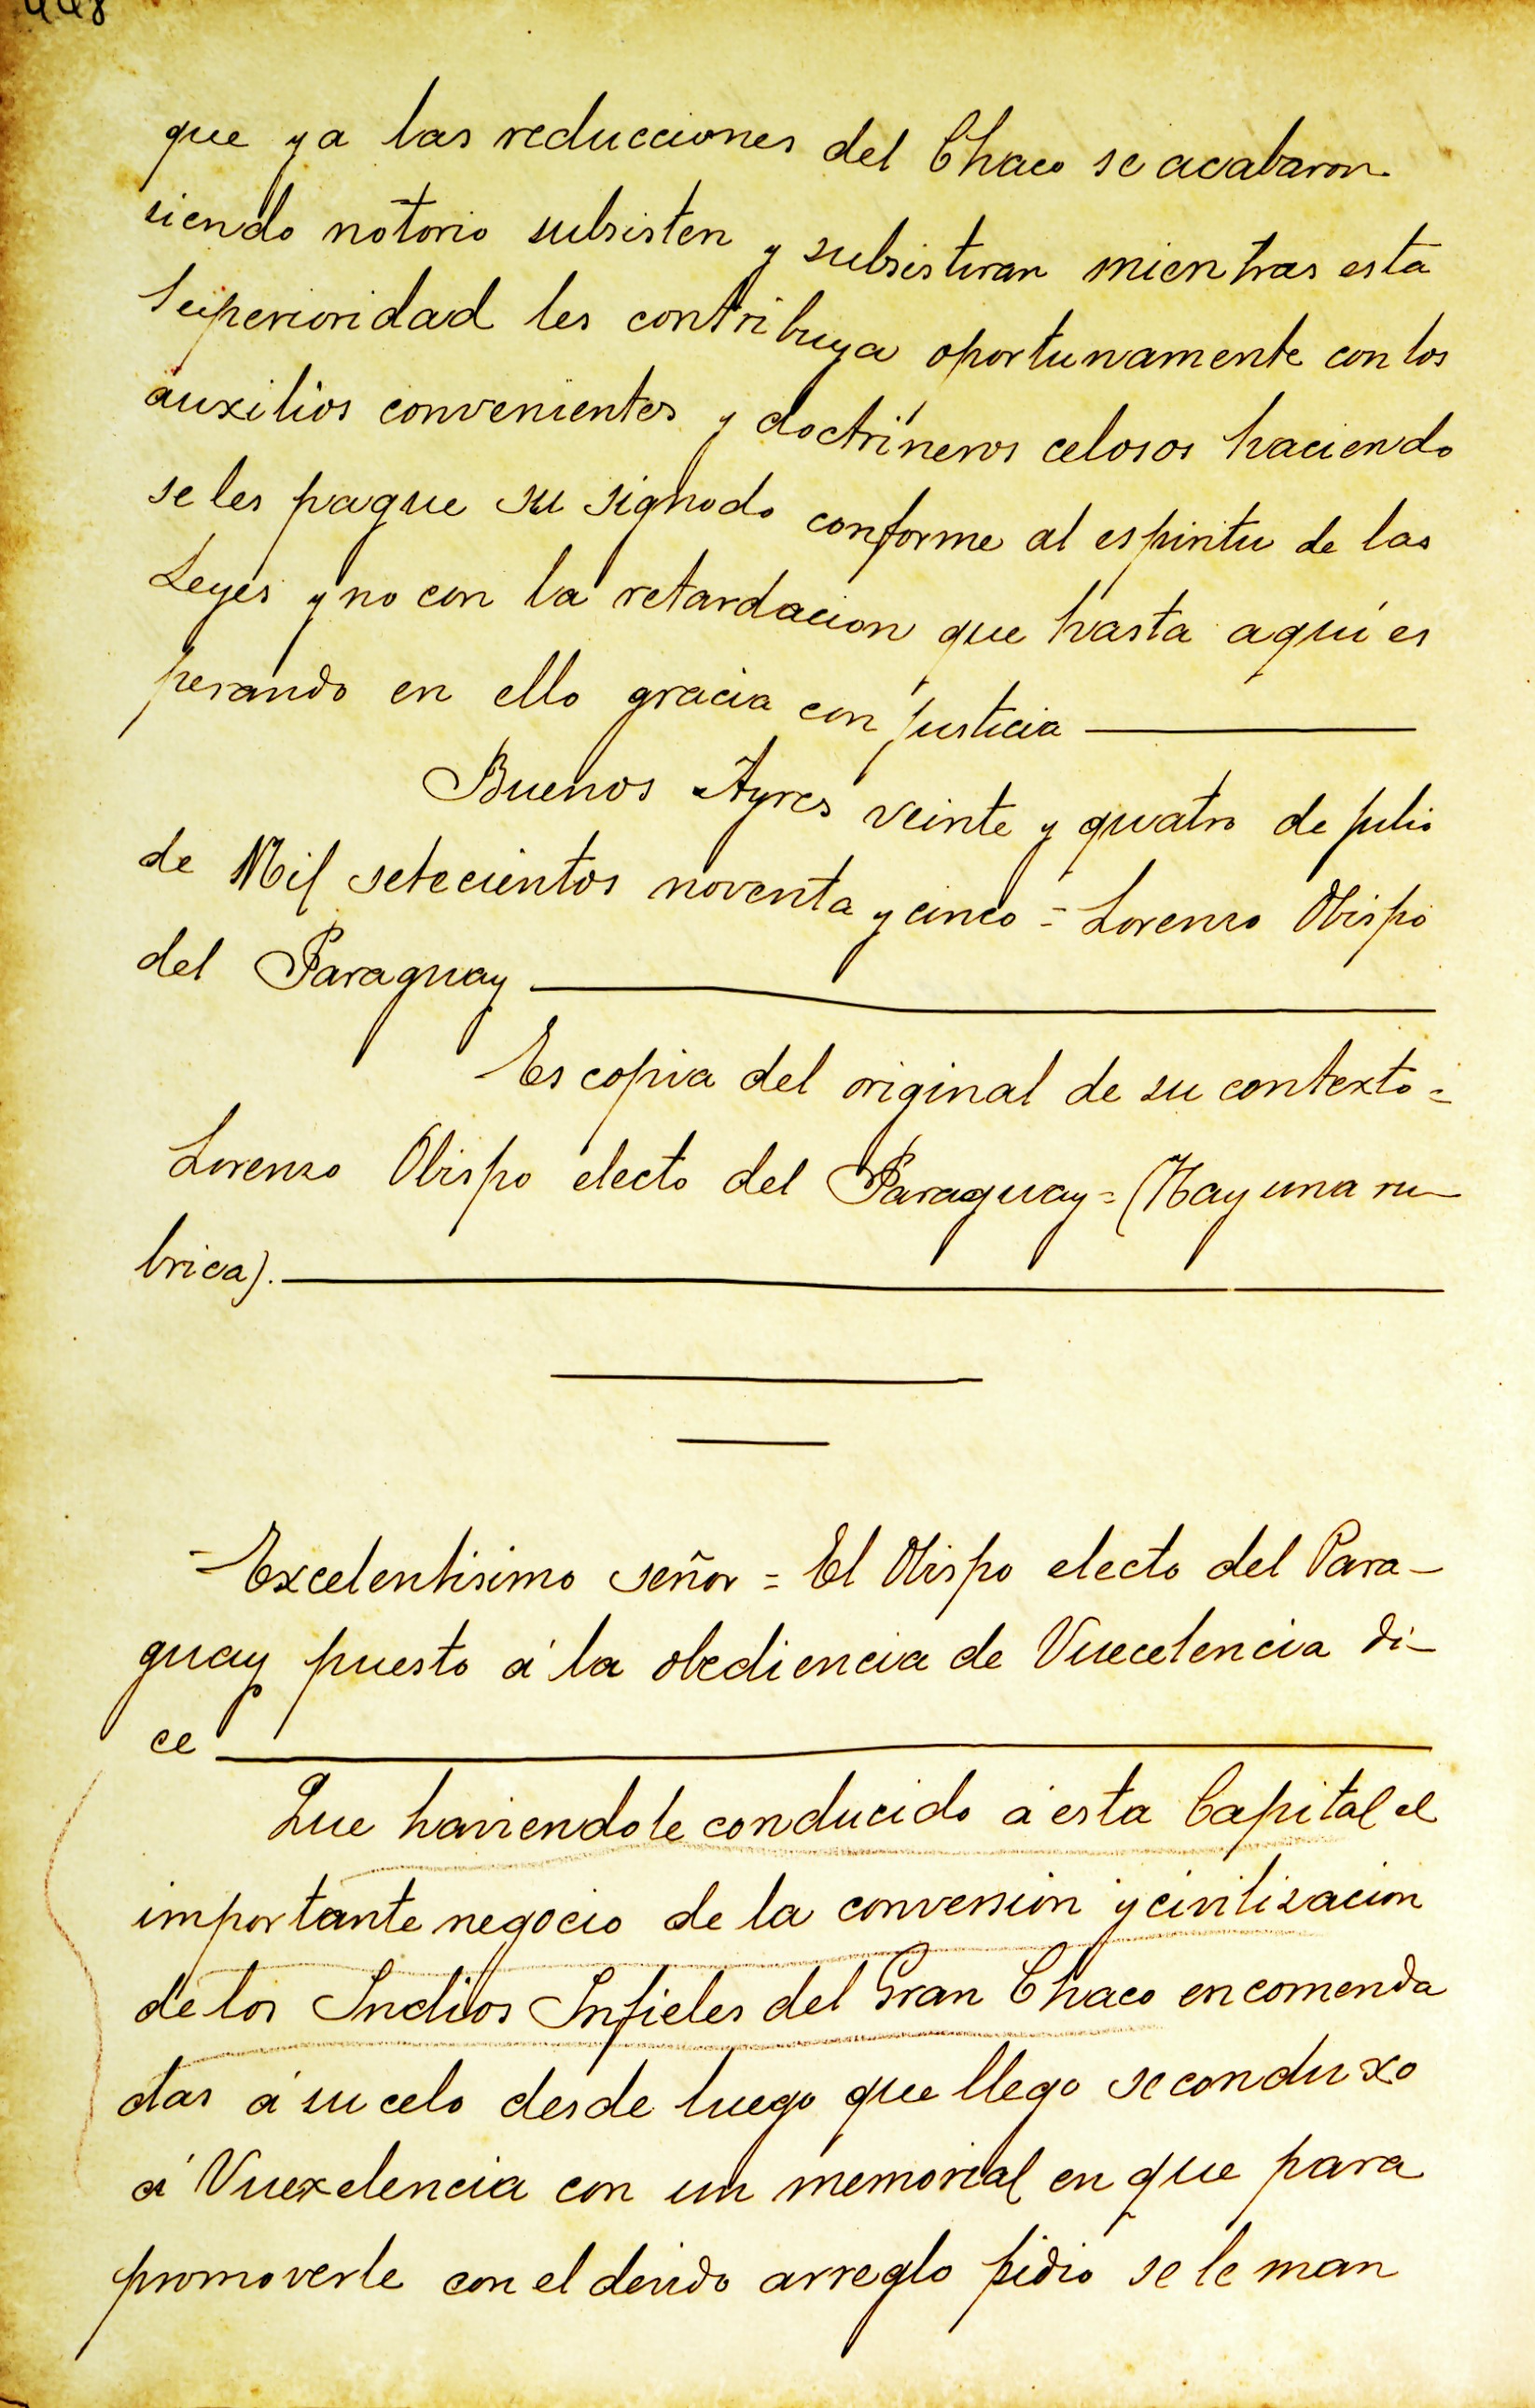 que ya las reducciones del Chaco se acabaron
siendo notorio subsisten y subsistiran mientras esta
Superioridad les contribuya oportunamente con los
auxilios convenientes y doctrineros celosos haciendo
se les pague su signodo conforme al espiritu de las
Leyes y no con la retardacion que hasta aqui es
perando en ello gracia con justicia
Buenos Ayres veinte y quatro de julio
de Mil setecientos noventa y cinco = Lorenzo Obispo
del Paraguay
Es copia del original de su contexto =
Lorenzo Obispo electo del Paraguay = (Hay una ru-
brica).
= Excelentisimo señor = El Obispo electo del Para-
guay puesto á la obediencia de Vuecelencia di-
ce
Que haviendole conducido á esta Capital el
importante negocio de la conversion y civilizacion
de los Indios Infieles del Gran Chaco encomenda
das á su celo desde luego que llego se conduxo
á Vuexelencia con un memorial en que para
promoverle con el devido arreglo pidio se le man